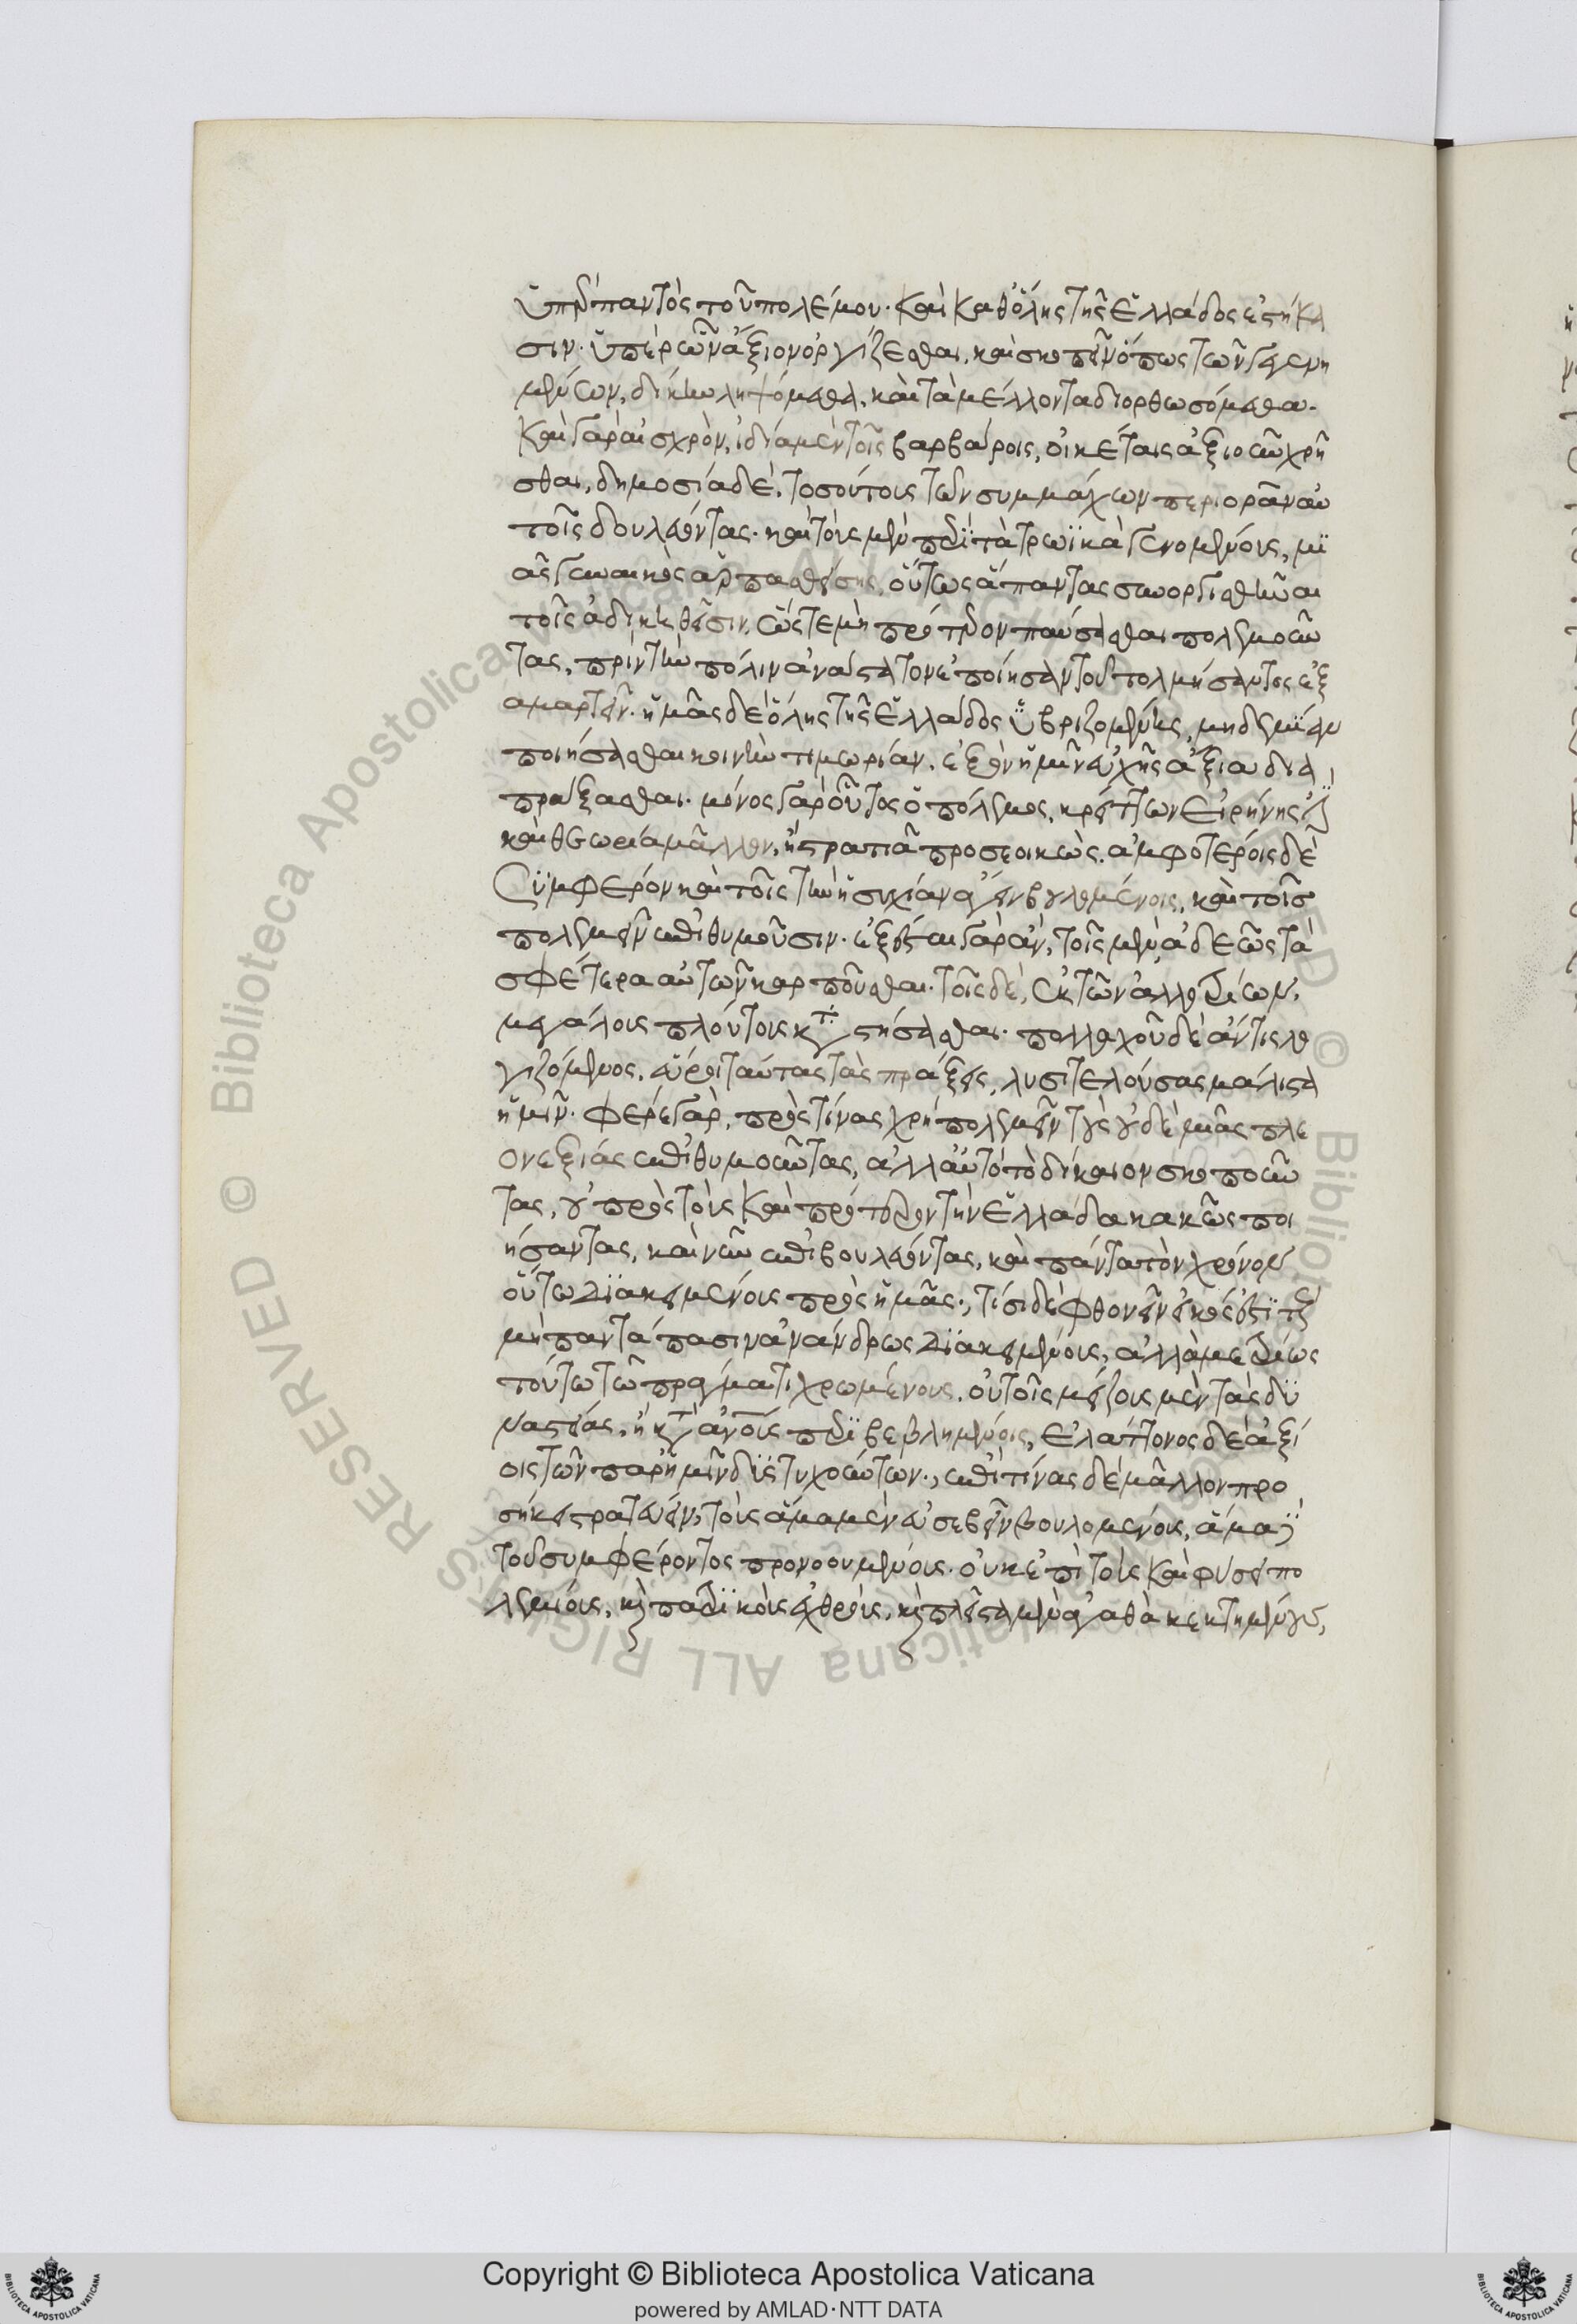 ὑπὲρ παντὸς τοῦ πολέμου. καὶ καθόλης τῆς Ἑλλάδος ἑστήκα
σιν. ὑπὲρ ὧν ἄξιον ὀργίζεσθαι, καὶ σκοπεῖν ὅπως τῶν γεγενη
μένων, δίκην ληψόμεθα, καὶ τὰ μέλλοντα διορθωσόμεθα.
καὶ γὰρ αἰσχρὸν, ἰδία μὲν τοῖς βαρβάροις, οἰκέταις ἀξιοῦν χρῆ
σθαι, δημοσία δὲ, τοσούτους τῶν συμμάχων περιορᾶν αὐ
τοῖς δουλεύοντας. καὶ τοὺς μὲν περὶ τὰ τρωϊκὰ γενομένους, μι
ᾶς γυναικὸς ἁρπασθείσης, οὕτως ἅπαντας συνοργισθῆναι
τοῖς ἀδικηθεῖσιν, ὥστε μὴ πρότερον παύσασθαι πολεμοῦν
τας, πρὶν τὴν πόλιν ἀνάστατον ἐποίησαν τοῦ τολμήσαντος ἐξ
αμαρτεῖν. ἡμᾶς δὲ ὅλης τῆς Ἑλλάδος ὑβριζομένης, μηδεμίαν
ποιήσασθαι κοινὴν τιμωρίαν, ἐξὸν ἡμῖν εὐχῆς ἄξια δια
πράξασθαι. μόνος γὰρ οὗτος ὁ πόλεμος, κρείττων εἰρήνης ἐστί
καὶ θεωρία μᾶλλον, ἢ στρατιᾶ προσεοικὼς. ἀμφοτέροις δὲ
συμφέρον καὶ τοῖς τὴν ἡσυχίαν ἄγειν βουλομένοις, καὶ τοῖς
πολεμεῖν ἐπιθυμοῦσιν. ἐξέσται γὰρ ἂν, τοῖς μὲν ἀδεῶς τὰ
σφέτερα αὐτῶν καρποῦσθαι. τοῖς δὲ, ἐκ τῶν ἀλλοτρίων,
μεγάλους πλούτους κατακτήσασθαι. πολλαχοῦ δὲ ἄν τις λο
γιζόμενος, εὕροι ταύτας τὰς πράξεις, λυσιτελούσας μάλιστα
ἡμῖν. φέρε γὰρ, πρὸς τίνας χρὴ πολεμεῖν τοὺς οὐδεμιᾶς πλε
ονεξίας ἐπιθυμοῦντας, ἀλλ' αὐτὸ τὸ δίκαιον σκοποῦν
τας, οὐ πρὸς τοὺς καὶ πρότερον τὴν Ἑλλάδα κακῶς ποι
ήσαντας, καὶ νῦν ἐπιβουλεύοντας, καὶ πάντα τὸν χρόνον
οὕτω διακειμένους πρὸς ἡμᾶς; τίσι δὲ φθονεῖν εἰκός ἐστι τοὺς
μὴ παντάπασιν ἀνάνδρως διακειμένους, ἀλλὰ μετρίως
τούτω τῶ πράγματι χρωμένους, οὐ τοῖς μείζους μὲν τὰς δυ
ναστείας, ἢ κατὰ ἀνους περιβεβλημένοις, ἐλάττονος δὲ ἀξί
οις τῶν παρ' ἡμῖν δυστυχούντων; ἐπὶ τίνας δὲ μᾶλλον προ
σήκει στρατεύειν, τοὺς ἅμα μὲν εὐσεβεῖν βουλομένους, ἅμα δὲ
τοῦ συμφέροντος προνοουμένους. οὐκ ἐπὶ τοὺς καὶ φύσει πο
λεμίους, καὶ πατρικοὺς ἐχθροὺς, καὶ πλεῖστα μὲν ἀγαθὰ κεκτημένους,
© Biblioteca Apostolica Vaticana ALL RIGHTS RESERVED
Copyright © Biblioteca Apostolica Vaticana
powered by AMLAD·NTT DATA